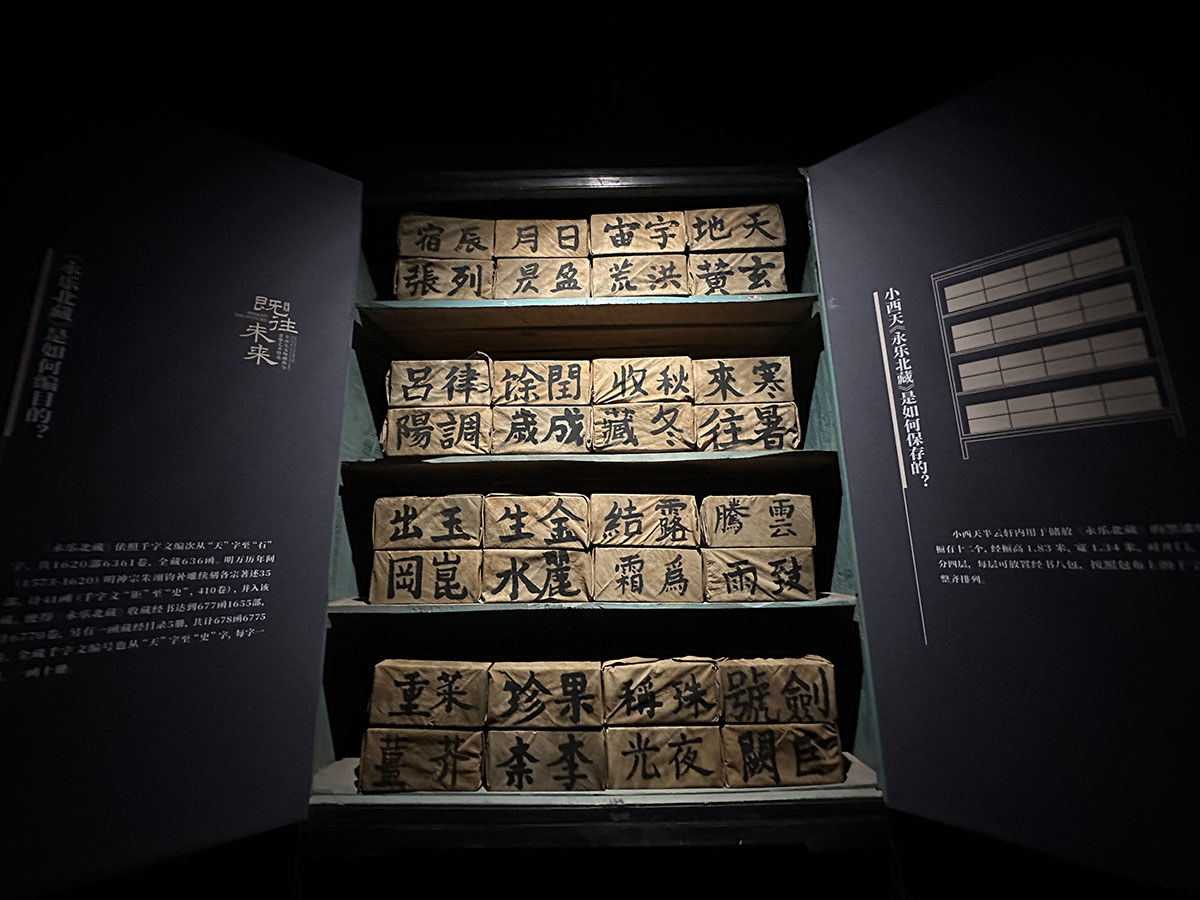 《永乐北藏》是如何编目的?
既往
未来
《永乐北藏》依照千字文编次从“天”字至“石”
字,共1620部6361卷,全藏636函。明万历年间
(1573-1620)明神宗朱翊钧补雕续刻各宗著述35
部,计41函(千字文“钜”至“史”,410卷),并入该
藏,使得《永乐北藏》收藏经书达到677函1655部,
计6770卷,另有一函藏经目录5册,共计678函6775
全藏千字文编号也从“天”字至“史”字,每字一
函十册
天地宇宙日月辰宿
玄黄洪荒盈昃列張
寒來秋收閏餘律呂
暑往冬藏成歲調陽
雲騰露結金生玉出
致雨爲霜麗水崑岡
劍號珠稱果珍菜重
巨闕夜光李柰芥薑
小西天《永乐北藏》是如何保存的?
小西天半云轩内用于储放《永乐北藏》的黑漆
橱有十二个,经橱高1.83米,宽1.34米,
分四层,每层可放置经书八包,按照包布上的千字
整齐排列。